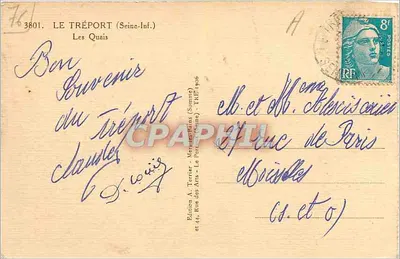 76
3801. LE TRÉPORT (Seine-Inf.)
Les Quais
A
8F
POSTES
RF
Bon
Souvenir
du Tréport
Claude
Edition A. Terrier - Mers-les-Bains (Somme)
et 44, Rue des Arts - Le
CPAPHIL
M. et Mme
27 rue de Paris
Moisselles
(S. et O)